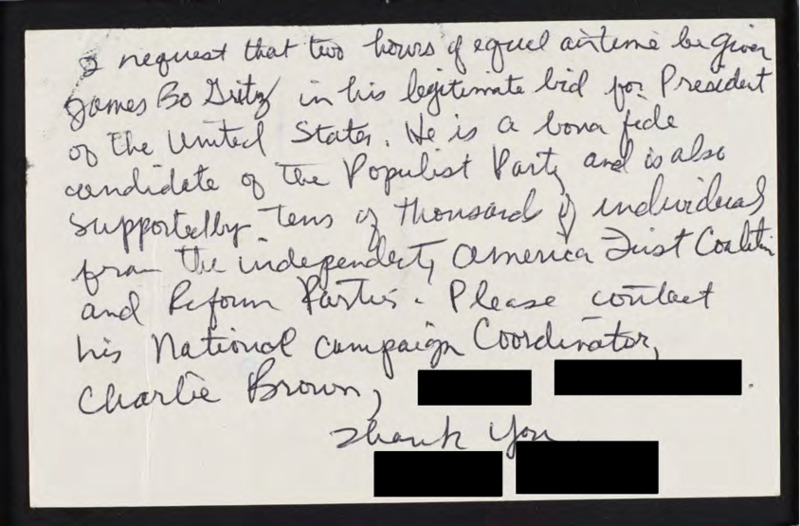 I request that two hours of equal airtime be given
James Bo Gritz in his legitimate bid for President
of the United States. He is a bona fide
candidate of the Populist Party and is also
supported by Tens of thousand of individuals
from the independent, America First Coalition
and Reform Parties. Please contact
his National campaign Coordinator,
Charlie Brown,
Thank You